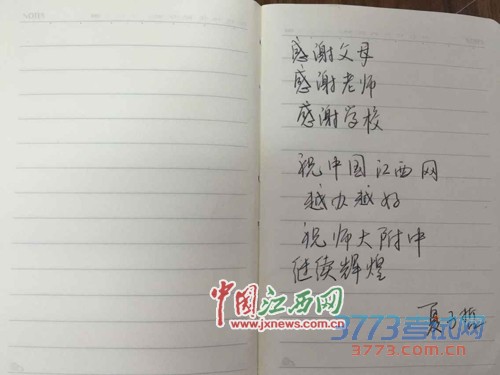 感谢父母
感谢老师
感谢学校
祝中国江西网
越办越好
祝师大附中
继续辉煌
夏子哲
中国江西网
www.jxnews.com.cn
3773考试网
3773.com.cn